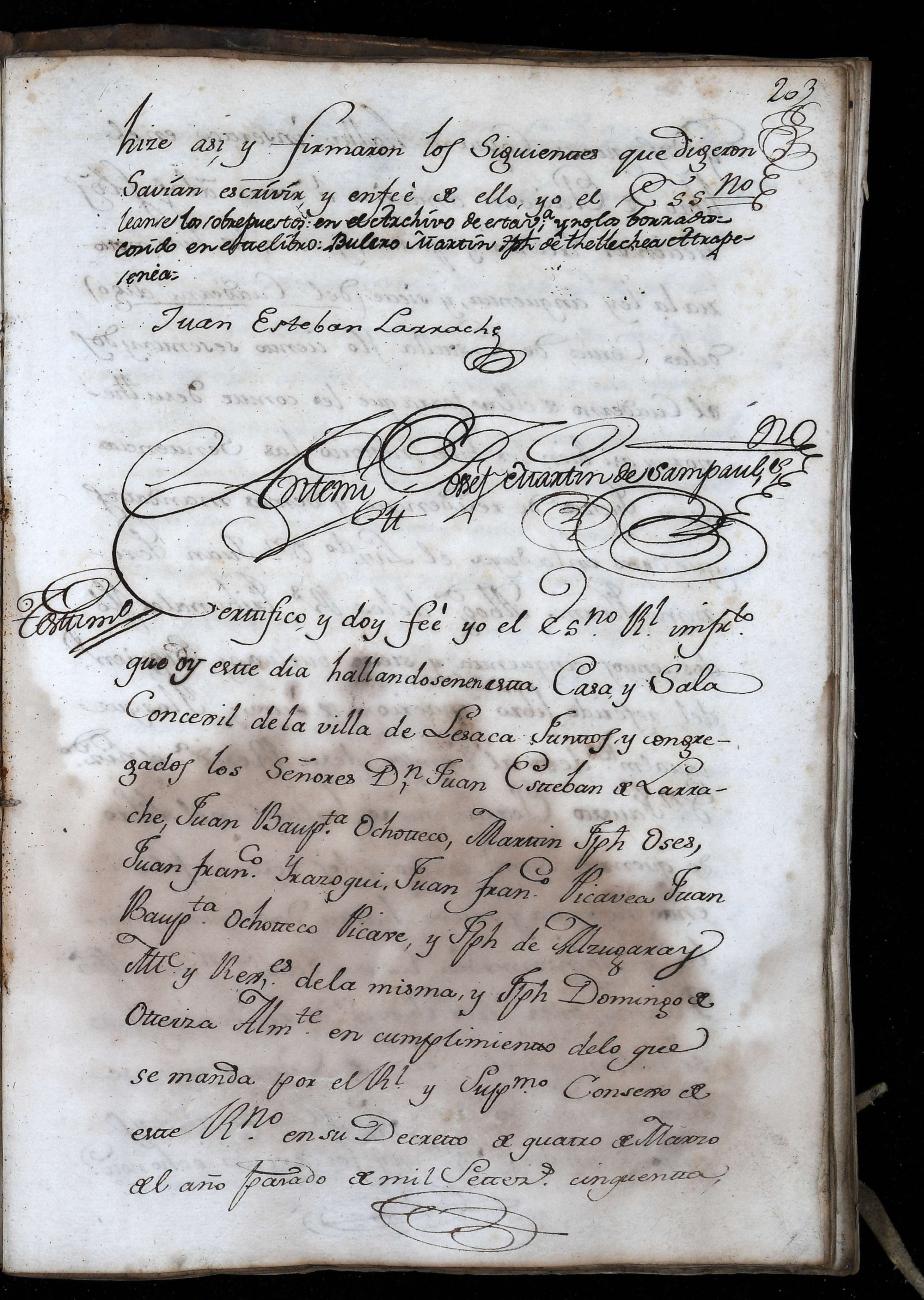 203
hize asi y firmaron los Siguientes que digeron
Savian escrivir, y enfeè de ello, yo el Ess.no
leanse los sobrepuestos: en el Archivo de esta v.a y no la borrado:
corido en este libro: Bulero Martin Jph. de thellechea
senia=
Juan Esteban Larrache
Antemi Josef Martin de Sampaul, es.no
Testim.o
Certifico, y doy feé yo el Es.no Rl. imfrto.
que oy este dia hallandosen en esta Casa, y Sala
Concexil de la villa de Lesaca Juntos, y congre-
gados los Señores Dn. Juan Esteban de Larra-
che, Juan Baup.ta Ochoteco, Martin Jph Oses,
Juan fran.co Yrazogui, Juan fran.co Picavea Juan
Baup.ta Ochoteco Picave, y Jph de Alzugaray
Alc.e y Rex.es de la misma, y Jph Domingo de
Oteiza Alm.te en cumplimiento de lo que
se manda por el Rl. y Supmo. Consexo de
este Rno. en su Decretto de quatro de Marzo
del año pasado de mil Setter.s cinquenta,